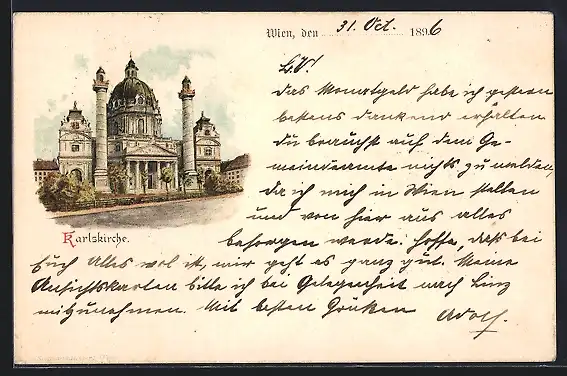 Wien, den 31. Oct. 1896
L. V.!
Das Monatgeld habe ich gestern
bestens dankend erhalten
Du brauchst auf dem Ge-
meindeamte nichts zu melden,
da ich mich in Wien stellen
und von hier aus alles
besorgen werde. Hoffe, daß bei
Euch Alles wol ist, mir geht es ganz gut. Meine
Ansichtskarten bitte ich bei Gelegenheit nach Linz
mitzunehmen. Mit besten Grüßen
Adolf.
Karlskirche.